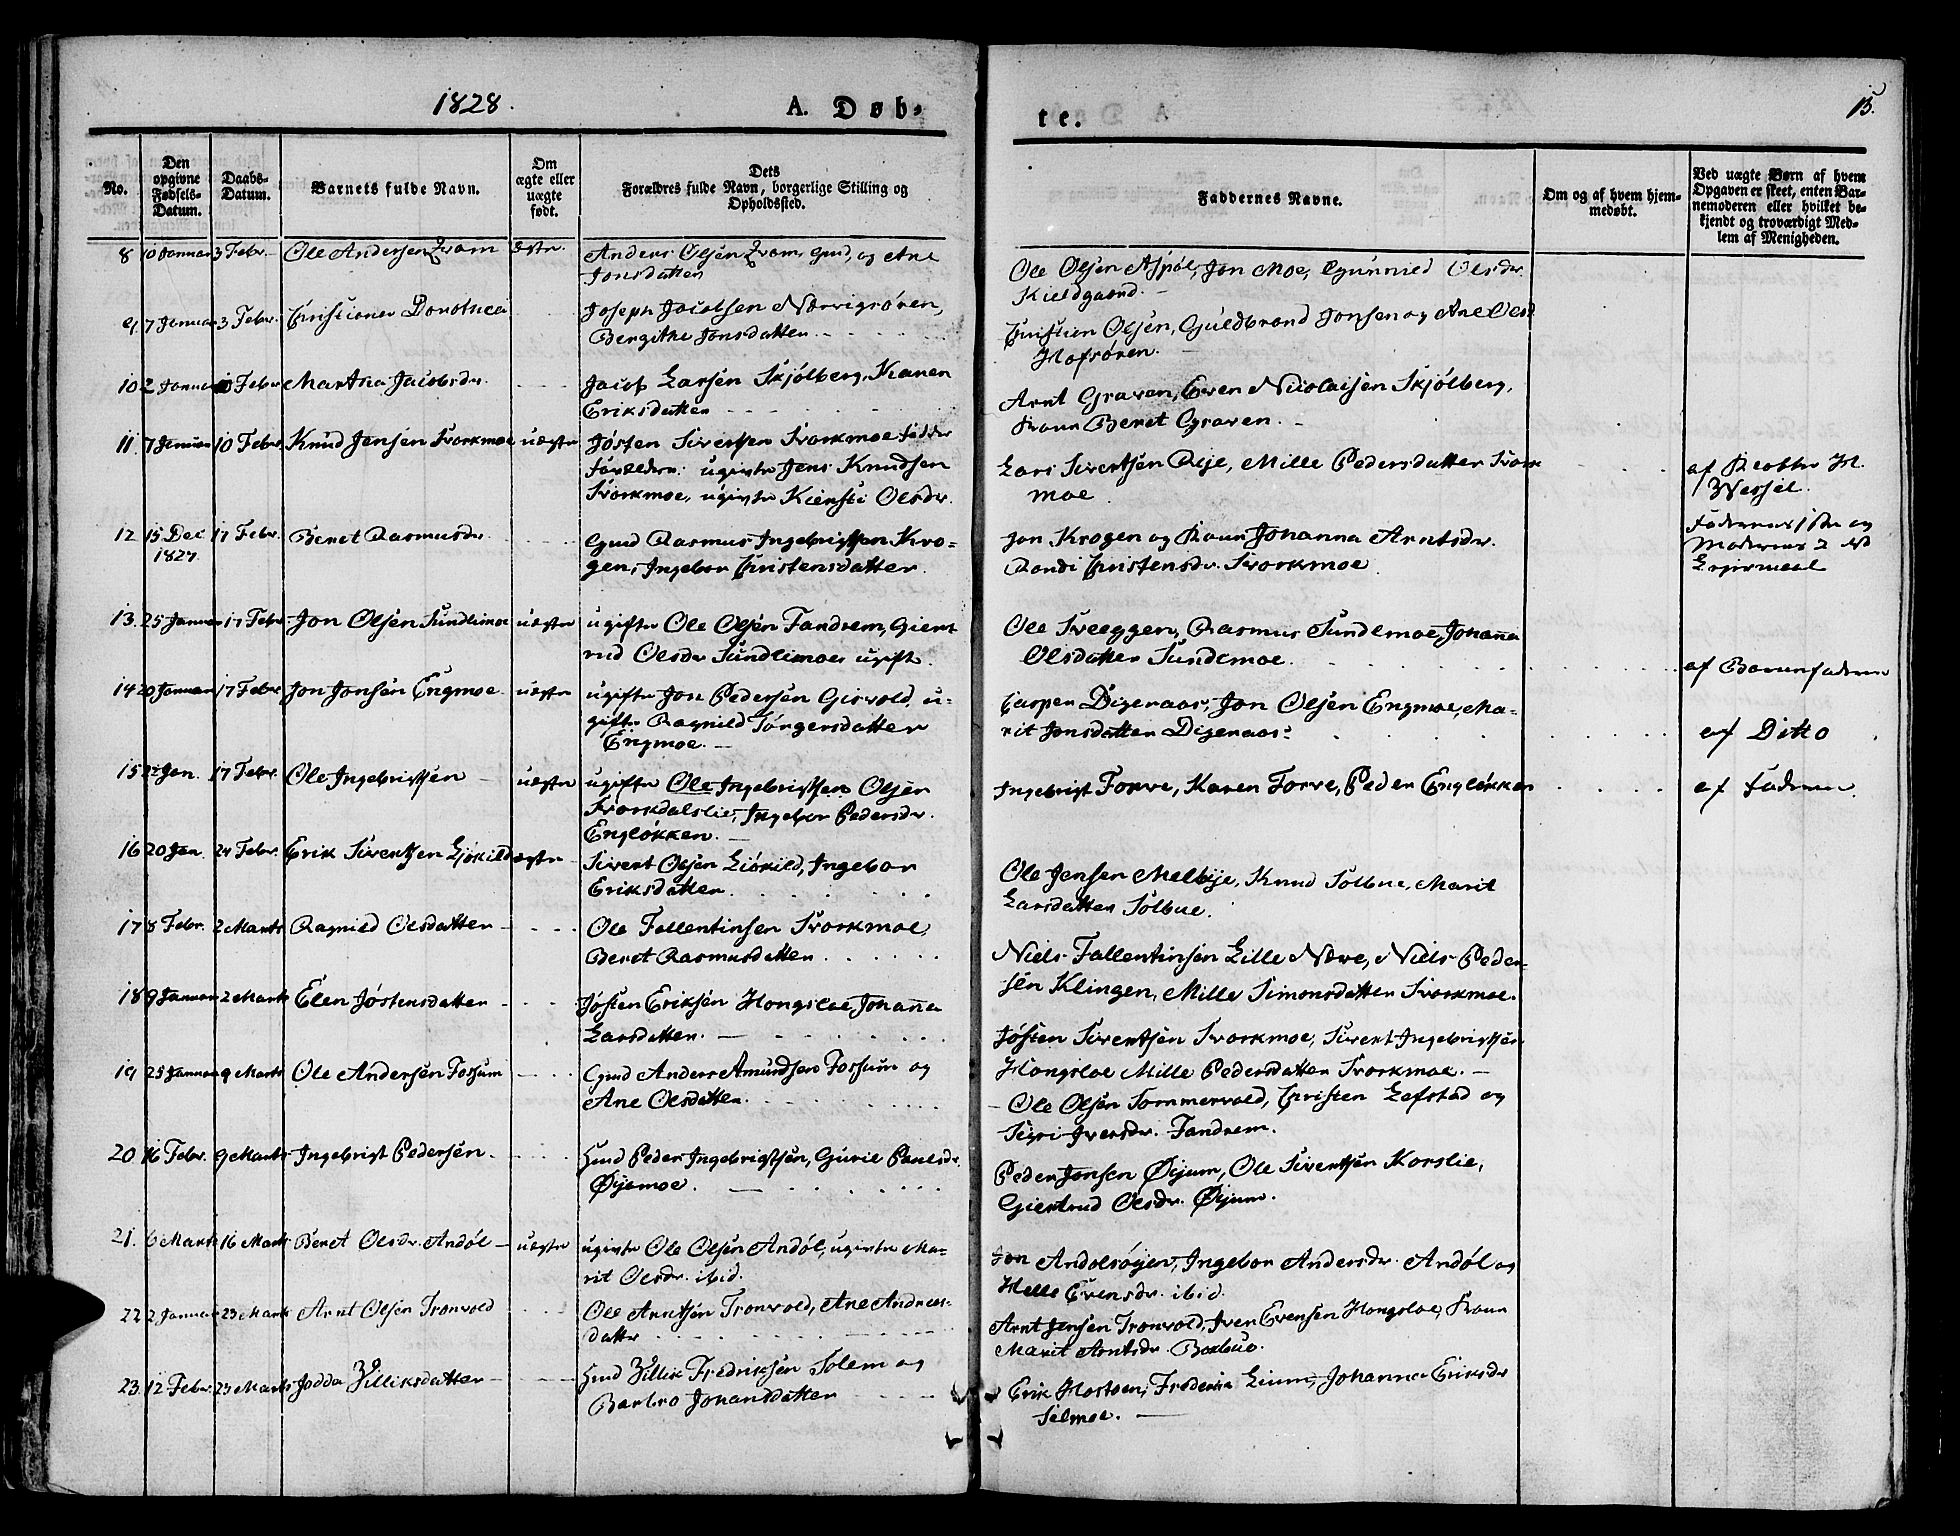 1828. A. Døb-
te. 15.
No.
Den opgivne Fødsels-Datum.
Daabs-Datum.
Barnets fulde Navn.
Om ægte eller uægte født.
Dets Forældres fulde Navn, borgerlige Stilling og Opholdssted.
Faddernes Navne.
Om og af hvem hjemmedøbt.
Ved uægte Børn af hvem Opgaven er skeet, enten Barnemoderen eller hvilket bekjendt og troværdigt Medlem af Menigheden.
8 10 Januar 3 Febr. Ole Andersen Kram ægte. Anders Olsen Kram, Gmd, og Ane
Jonsdatter
Ole Olsen Aspøl, Jon Moe, Gunnild Olsdr.
Kieldgaard.
9. 7 Januar 3 Febr. Christianes Dorothea Joseph Jacobsen Nervigsøren,
Bergithe Jonsdatter
Christian Olsen, Guldbrand Jonsen og Ane Olsd
Hofsøren.
10 2 Januar 10 Febr Martha Jacobsdr. Jacob Larsen Skjølberg, Karen
Eriksdatter
Arnt Graven, Even Nicolaisen Skjølberg,
Kone Beret Graven.
11. 7 Januar 10 Febr. Knud Jensen Svorkmoe uægte Jøsten Sivertsen Svorkmoe
ugivte Jens Knudsen
Svorkmoe, ugivte Kiersti Olsdr.
Lars Sivertsen Rije, Mille Pedersdatter Svork
moe
af H.
Wessel.
12 15 Dec 17 Febr. Beret Rasmusdr
1827.
Gmd Rasmus Ingebrigtsen Kro-
gen, Ingebor Christensdatter.
Jon Krogen og Kone Johanna Arntsdr.
Randi Christensdr. Svorkmoe
Faderens 1ste og
Moderens 2 det
Leiermaal
13. 25 Januar 17 Febr. Jon Olsen Sundlimoe uægte ugifte Ole Olsen Fandrem, Giert
rud Olsdr Sundlimoe ugift.
Ole Sveeggen, Rasmus Sundlimoe, Johanna
Olsdatter Sundemoe.
af Barnefaderen
14 20 Januar 17 Febr Jon Jonsen Engmoe uægte ugifte Jon Pedersen Gisvold, u-
gifte Ragnild Torgersdatter
Engmoe.
Casper Digeraas, Jon Olsen Engmoe, Ma-
rit Jonsdatter Digeraas
af Ditto
15 22 Jan. 17 Febr. Ole Ingebrigtsen uægte ugifte Ole Ingebrigtsen Olsen
Svorkdalslie, Ingebor Pedersdr.
Engløkken.
Ingebrigt Forve, Karen Forve, Peder Engløkken
af Faderen.
16 20 Jan. 24 Febr. Erik Sivertsen Liøkild ægte Sivert Olsen Liøkild, Ingebor
Eriksdatter
Ole Jensen Melbye, Knud Solbue, Marit
Larsdatter Solbue.
17 8 Febr. 2 Marts Ragnild Olsdatter Ole Fallentinsen Svorkmoe,
Beret Rasmusdatter
Niels Fallentinsen Lille Nerve, Niels Peder-
sen Klingen, Mille Simonsdatter Svorkmoe.
18 9 Januar 2 Marts Elen Jøstensdatter Jøsten Eriksen Hongsloe, Johanna
Larsdatter.
Jøsten Sivertsen Svorkmoe, Sivert Ingebrigtsen
Hongsloe Mille Pedersdatter Svorkmoe.
19 25 Januar 9 Marts Ole Andersen Fossum Gmd Anders Amundsen Fossum og
Ane Olsdatter.
Ole Olsen Sommervold, Christen Lefstad og
Sigri Iversdr. Fandrem.
20 16 Febr. 9 Marts Ingebrigt Pedersen. Hmd Peder Ingebrigtsen, Gurie Paulsdr.
Øijamoe.
Peder Jonsen Øijum, Ole Sivertsen Korslie,
Giertrud Olsdr. Øijum.
21. 6 Marts 16 Marts Beret Olsdr. Andøl uægte ugivte Ole Olsen Andøl, ugivte Ma-
rit Olsdr. ibid.
Jon Andølsøijen, Ingebor Andersdr. Andøl og
Helle Evensdr. ibid.
22 2 Januar 23 Marts Arnt Olsen Tronvold Ole Arntsen Tronvold, Ane Andreas-
datter
Arnt Jensen Tronvold, Iver Evensen Hongsloe, Kone
Marit Arntsdr.
23. 12 Febr. 23 Marts Jodda Williksdatter Hmd Willik Fredriksen Solem og
Barbro Johansdatter
Erik Hostoen, Frederik Lium, Johanna Eriksdr
Solmoe.